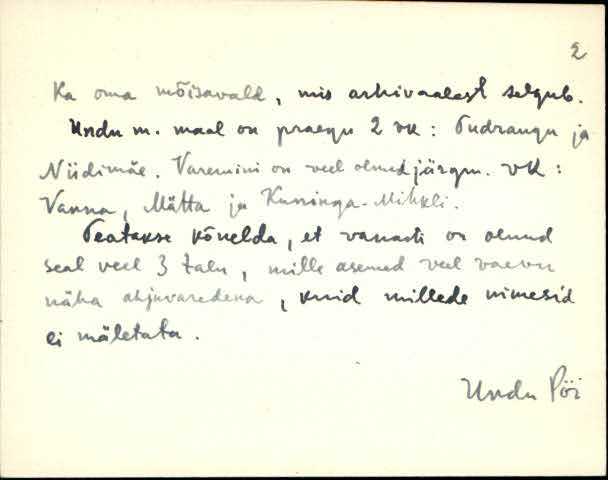 2
Ka oma mõisavald, mis arhivaalest selgub.
Undu m. maal on praegu 2 vk: Pudrangu ja
Niidimäe. Varemini on veel olnud järgm. vk:
Vanna, Mätta ja Kuninga-Mihkli.
Teatakse kõnelda, et vanasti on olnud
seal veel 3 talu, mille asemed veel vaevu
näha ahjuvaredena, kuid millede nimesid
ei mäletata.
Undu Pöi